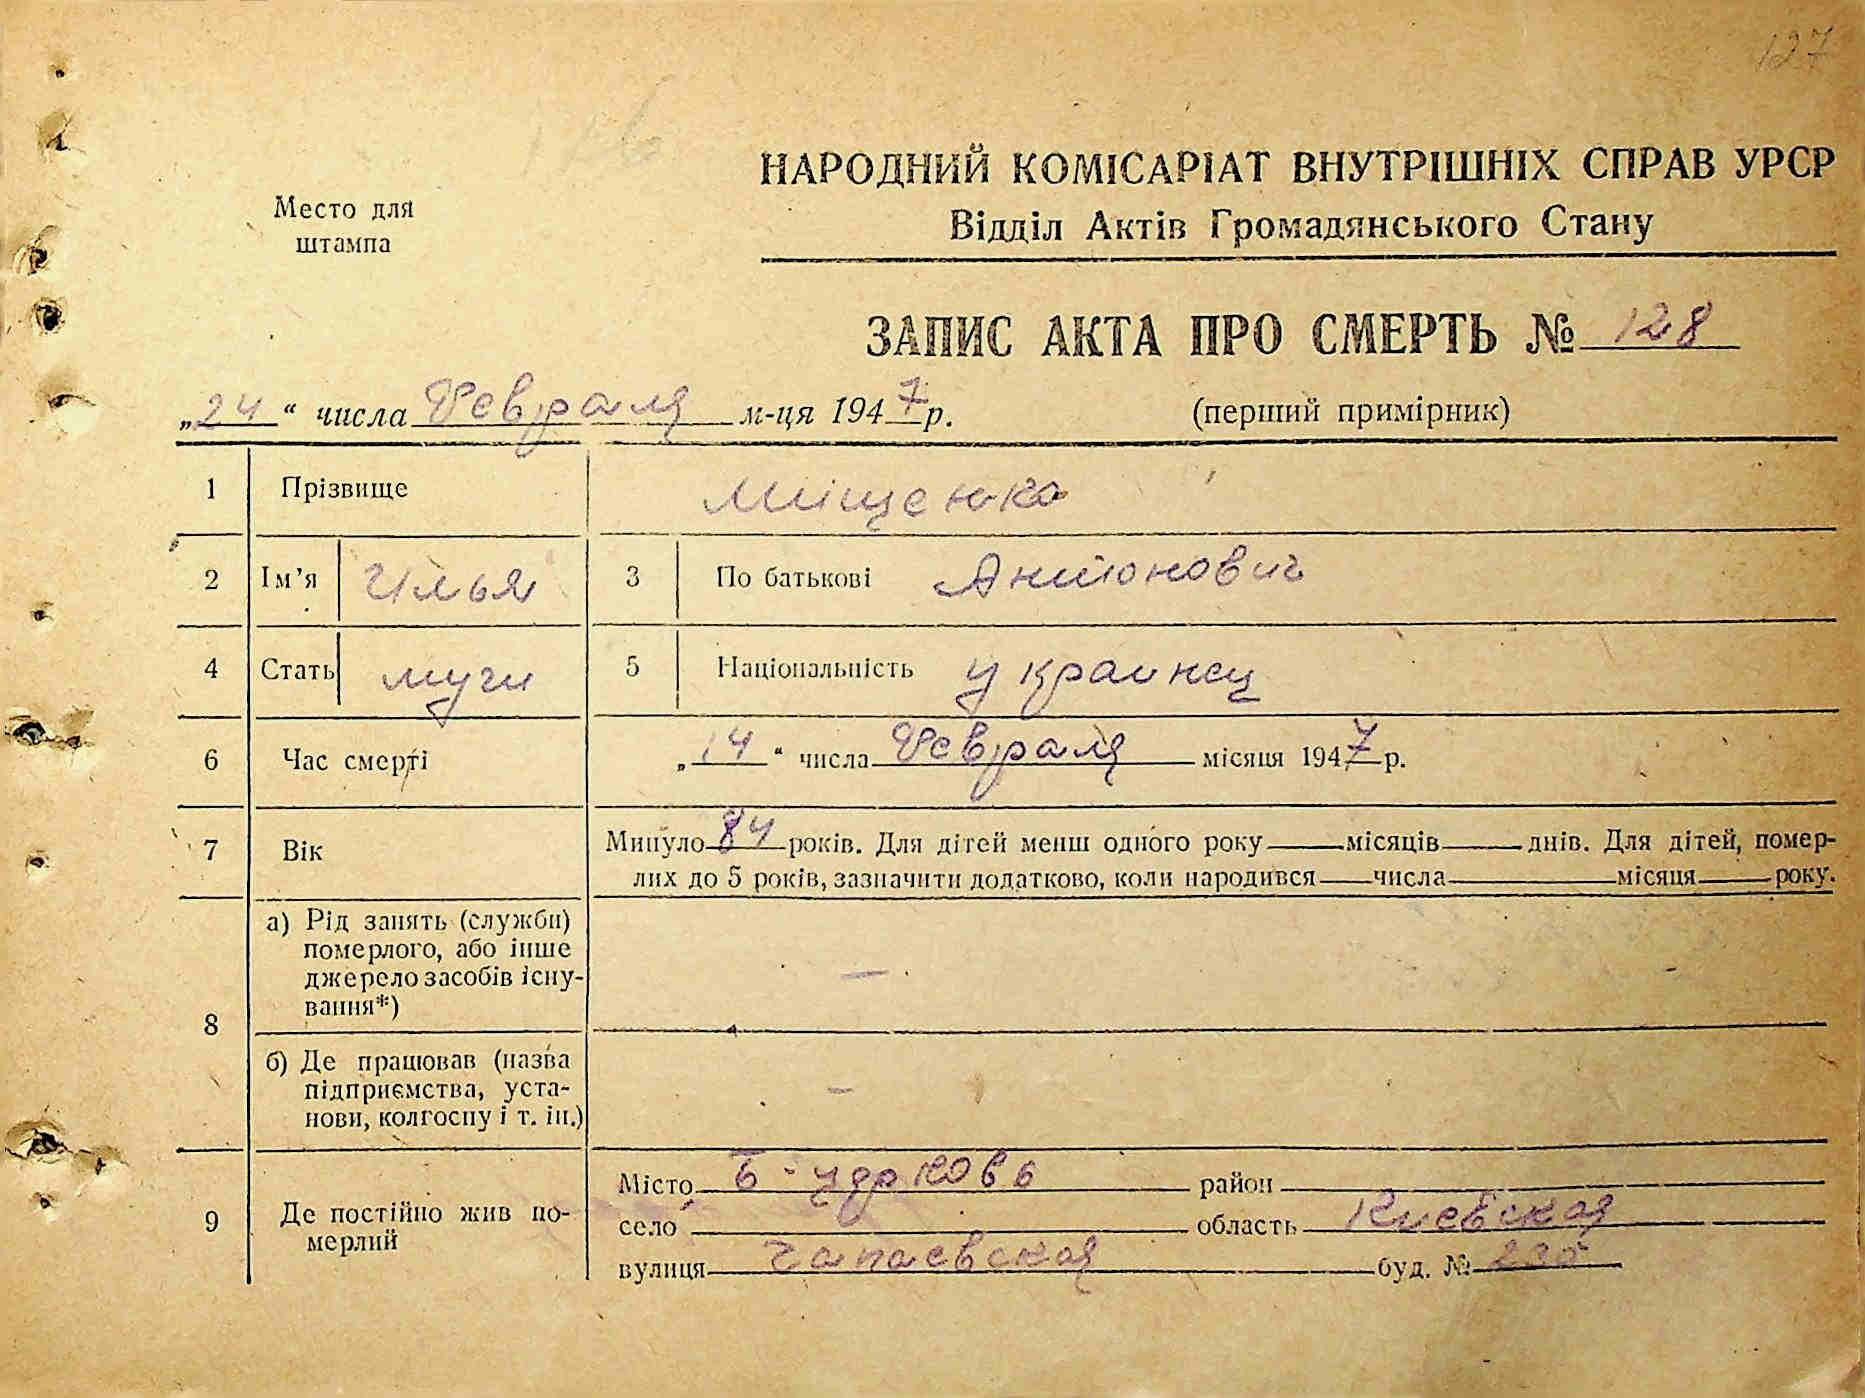 127
126
Место для
штампа
НАРОДНИЙ КОМІСАРІАТ ВНУТРІШНІХ СПРАВ УРСР
Відділ Актів Громадянського Стану
ЗАПИС АКТА ПРО СМЕРТЬ № 128
„24“ числа Февраля м-ця 1947 р. (перший примірник)
1 Прізвище Міщенко
2 Ім’я Илья 3 По батькові Антонович
4 Стать муж 5 Національність украинец
6 Час смерті „14“ числа Февраля місяця 1947 р.
7 Вік Минуло 84 років. Для дітей менш одного року місяців днів. Для дітей, помер-
лих до 5 років, зазначити додатково, коли народився числа місяця року.
8 а) Рід занять (служби)
померлого, або інше
джерело засобів існу-
вання*) —
б) Де працював (назва
підприємства, уста-
нови, колгоспу і т. ін.) —
9 Де постійно жив по-
мерлий
Місто Б-Церковь район
село область Киевская
вулиця Чапаевская буд. №